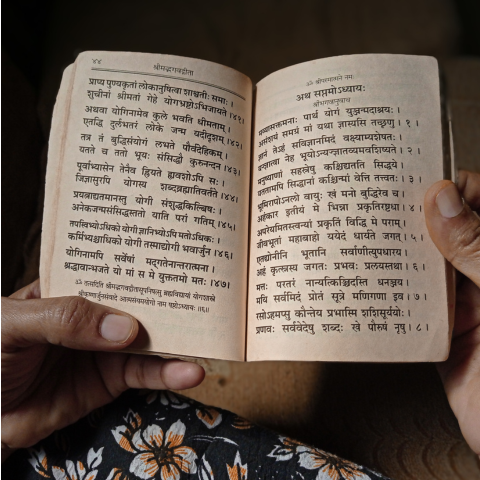 ४४
श्रीमद्भगवद्गीता
प्राप्य पुण्यकृतां लोकानुषित्वा शाश्वतीः समाः ।
शुचीनां श्रीमतां गेहे योगभ्रष्टोऽभिजायते ।४१।
अथवा योगिनामेव कुले भवति धीमताम् ।
एतद्धि दुर्लभतरं लोके जन्म यदीदृशम् ।४२।
तत्र तं बुद्धिसंयोगं लभते पौर्वदेहिकम् ।
यतते च ततो भूयः संसिद्धौ कुरुनन्दन ।४३।
पूर्वाभ्यासेन तेनैव ह्रियते ह्यवशोऽपि सः ।
जिज्ञासुरपि योगस्य शब्दब्रह्मातिवर्तते ।४४।
प्रयत्नाद्यतमानस्तु योगी संशुद्धकिल्बिषः ।
अनेकजन्मसंसिद्धस्ततो याति परां गतिम् ।४५।
तपस्विभ्योऽधिको योगी ज्ञानिभ्योऽपि मतोऽधिकः ।
कर्मिभ्यश्चाधिको योगी तस्माद्योगी भवार्जुन ।४६।
योगिनामपि सर्वेषां मद्गतेनान्तरात्मना ।
श्रद्धावान्भजते यो मां स मे युक्ततमो मतः ।४७।
ॐ तत्सदिति श्रीमद्भगवद्गीतासूपनिषत्सु ब्रह्मविद्यायां योगशास्त्रे
श्रीकृष्णार्जुनसंवादे आत्मसंयमयोगो नाम षष्ठोऽध्यायः ।।६।।
ॐ श्रीपरमात्मने नमः
अथ सप्तमोऽध्यायः
श्रीभगवानुवाच
मय्यासक्तमनाः पार्थ योगं युञ्जन्मदाश्रयः ।
असंशयं समग्रं मां यथा ज्ञास्यसि तच्छृणु । १ ।
ज्ञानं तेऽहं सविज्ञानमिदं वक्ष्याम्यशेषतः ।
यज्ज्ञात्वा नेह भूयोऽन्यज्ज्ञातव्यमवशिष्यते । २ ।
मनुष्याणां सहस्रेषु कश्चिद्यतति सिद्धये ।
यततामपि सिद्धानां कश्चिन्मां वेत्ति तत्त्वतः । ३ ।
भूमिरापोऽनलो वायुः खं मनो बुद्धिरेव च ।
अहंकार इतीयं मे भिन्ना प्रकृतिरष्टधा । ४ ।
अपरेयमितस्त्वन्यां प्रकृतिं विद्धि मे पराम् ।
जीवभूतां महाबाहो ययेदं धार्यते जगत् । ५ ।
एतद्योनीनि भूतानि सर्वाणीत्युपधारय ।
अहं कृत्स्नस्य जगतः प्रभवः प्रलयस्तथा । ६ ।
मत्तः परतरं नान्यत्किञ्चिदस्ति धनञ्जय ।
मयि सर्वमिदं प्रोतं सूत्रे मणिगणा इव । ७ ।
रसोऽहमप्सु कौन्तेय प्रभास्मि शशिसूर्ययोः ।
प्रणवः सर्ववेदेषु शब्दः खे पौरुषं नृषु । ८ ।